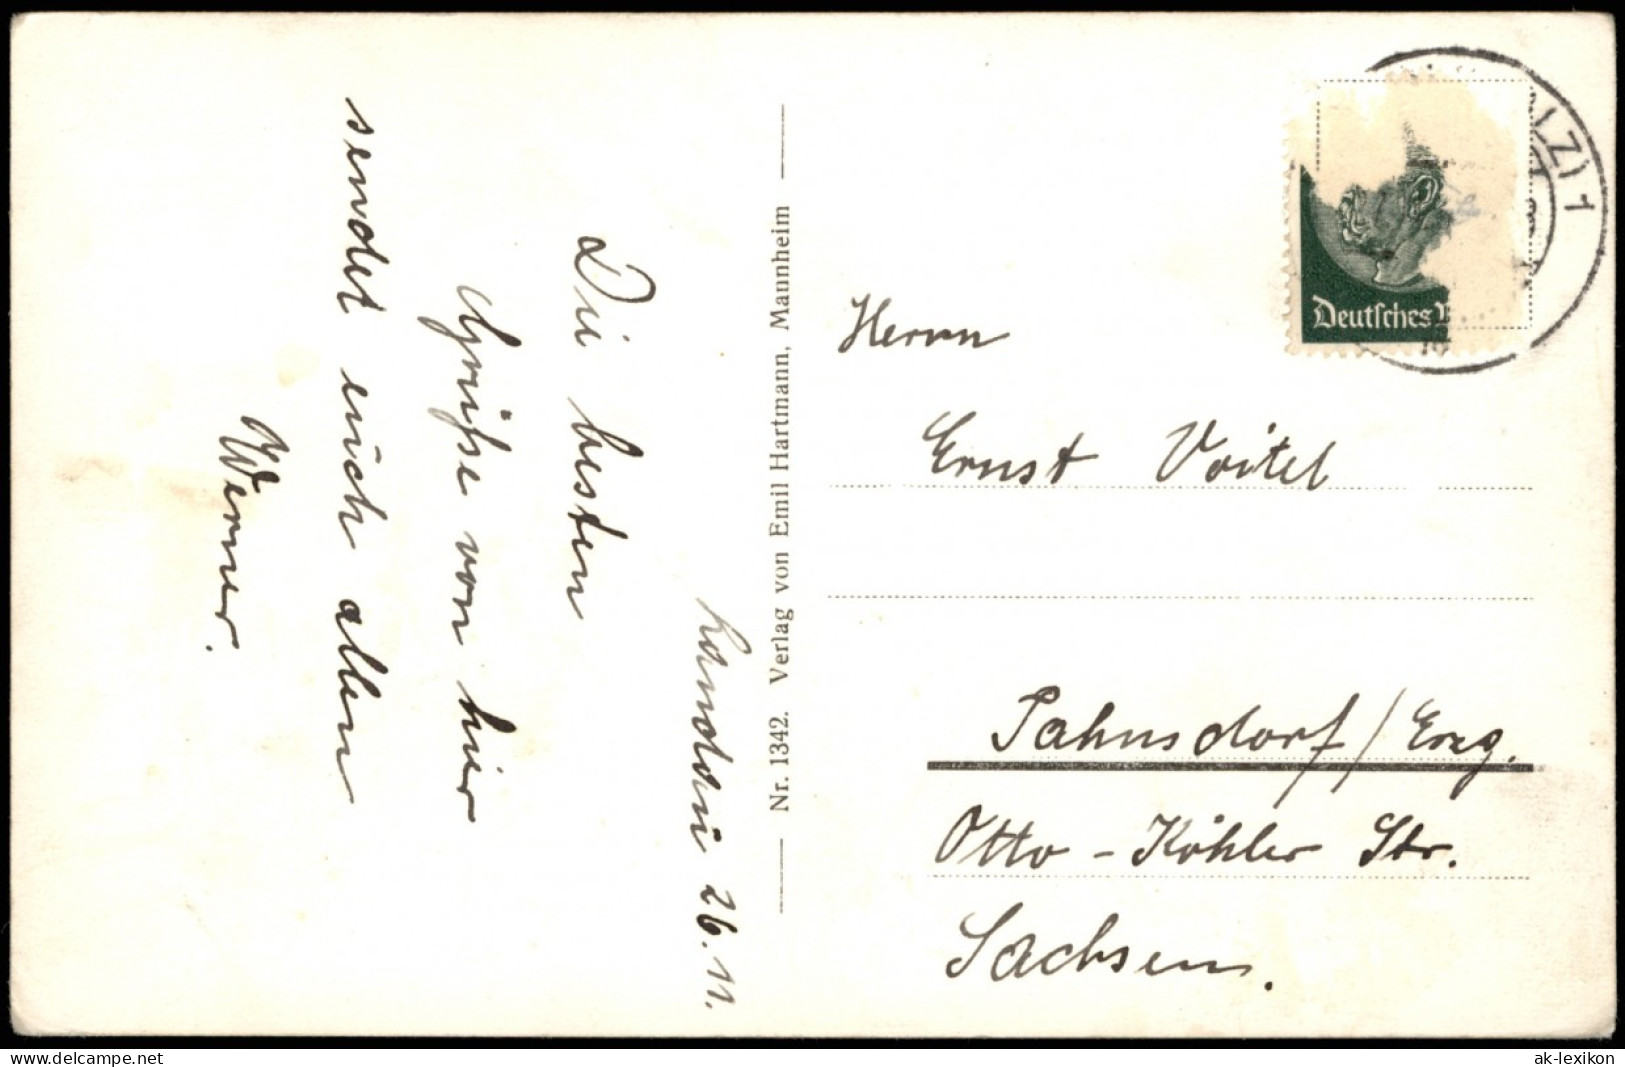 Landau 26.11.
Die besten
Grüße von hier
sendet euch allen
Werner.
Nr. 1342. Verlag von Emil Hartmann, Mannheim
LZ) 1
Deutsches
Herrn
Ernst Voitel
Pahnsdorf / Erzg.
Otto - Köhler Str.
Sachsen.
ak-lexikon.de
ak-lexikon